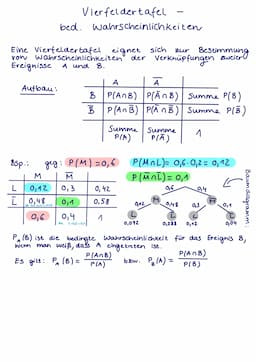 Vierfeldertafel –
bed. Wahrscheinlichkeiten
Eine Vierfeldertafel eignet sich zur Bestimmung
von Wahrscheinlichkeiten der Verknüpfungen zweier
Ereignisse A und B.
Aufbau:
A A̅
B P(A∩B) P(A̅∩B) Summe P(B)
B̅ P(A∩B̅) P(A̅∩B̅) Summe P(B̅)
Summe P(A) Summe P(A̅) 1
Bsp.: geg: P(M)=0,6 P(M∩L)=0,6·0,2=0,12
P(M̅∩L̅)=0,1
M M̅
L 0,12 0,3 0,42
L̅ 0,48 0,1 0,58
0,6 0,4 1
Baumdiagramm:
0,6 0,4
M M̅
0,48 0,3 0,1
L L̅ L L̅
P_A(B) ist die bedingte Wahrscheinlichkeit für das Ereignis B,
wenn man weiß, dass A eingetreten ist.
Es gilt: P_A(B) = P(A∩B)/P(A) bzw. P_B(A) = P(A∩B)/P(B)